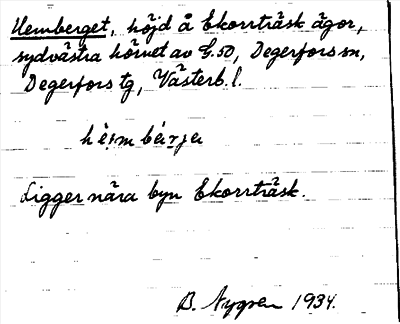 Hemberget, höjd å Ekorrträsk ägor,
sydvästra hörnet av G.50, Degerfors sn,
Degerfors tg, Västerb. l.
Ligger nära byn Ekorrträsk.
B. Nygren 1934.